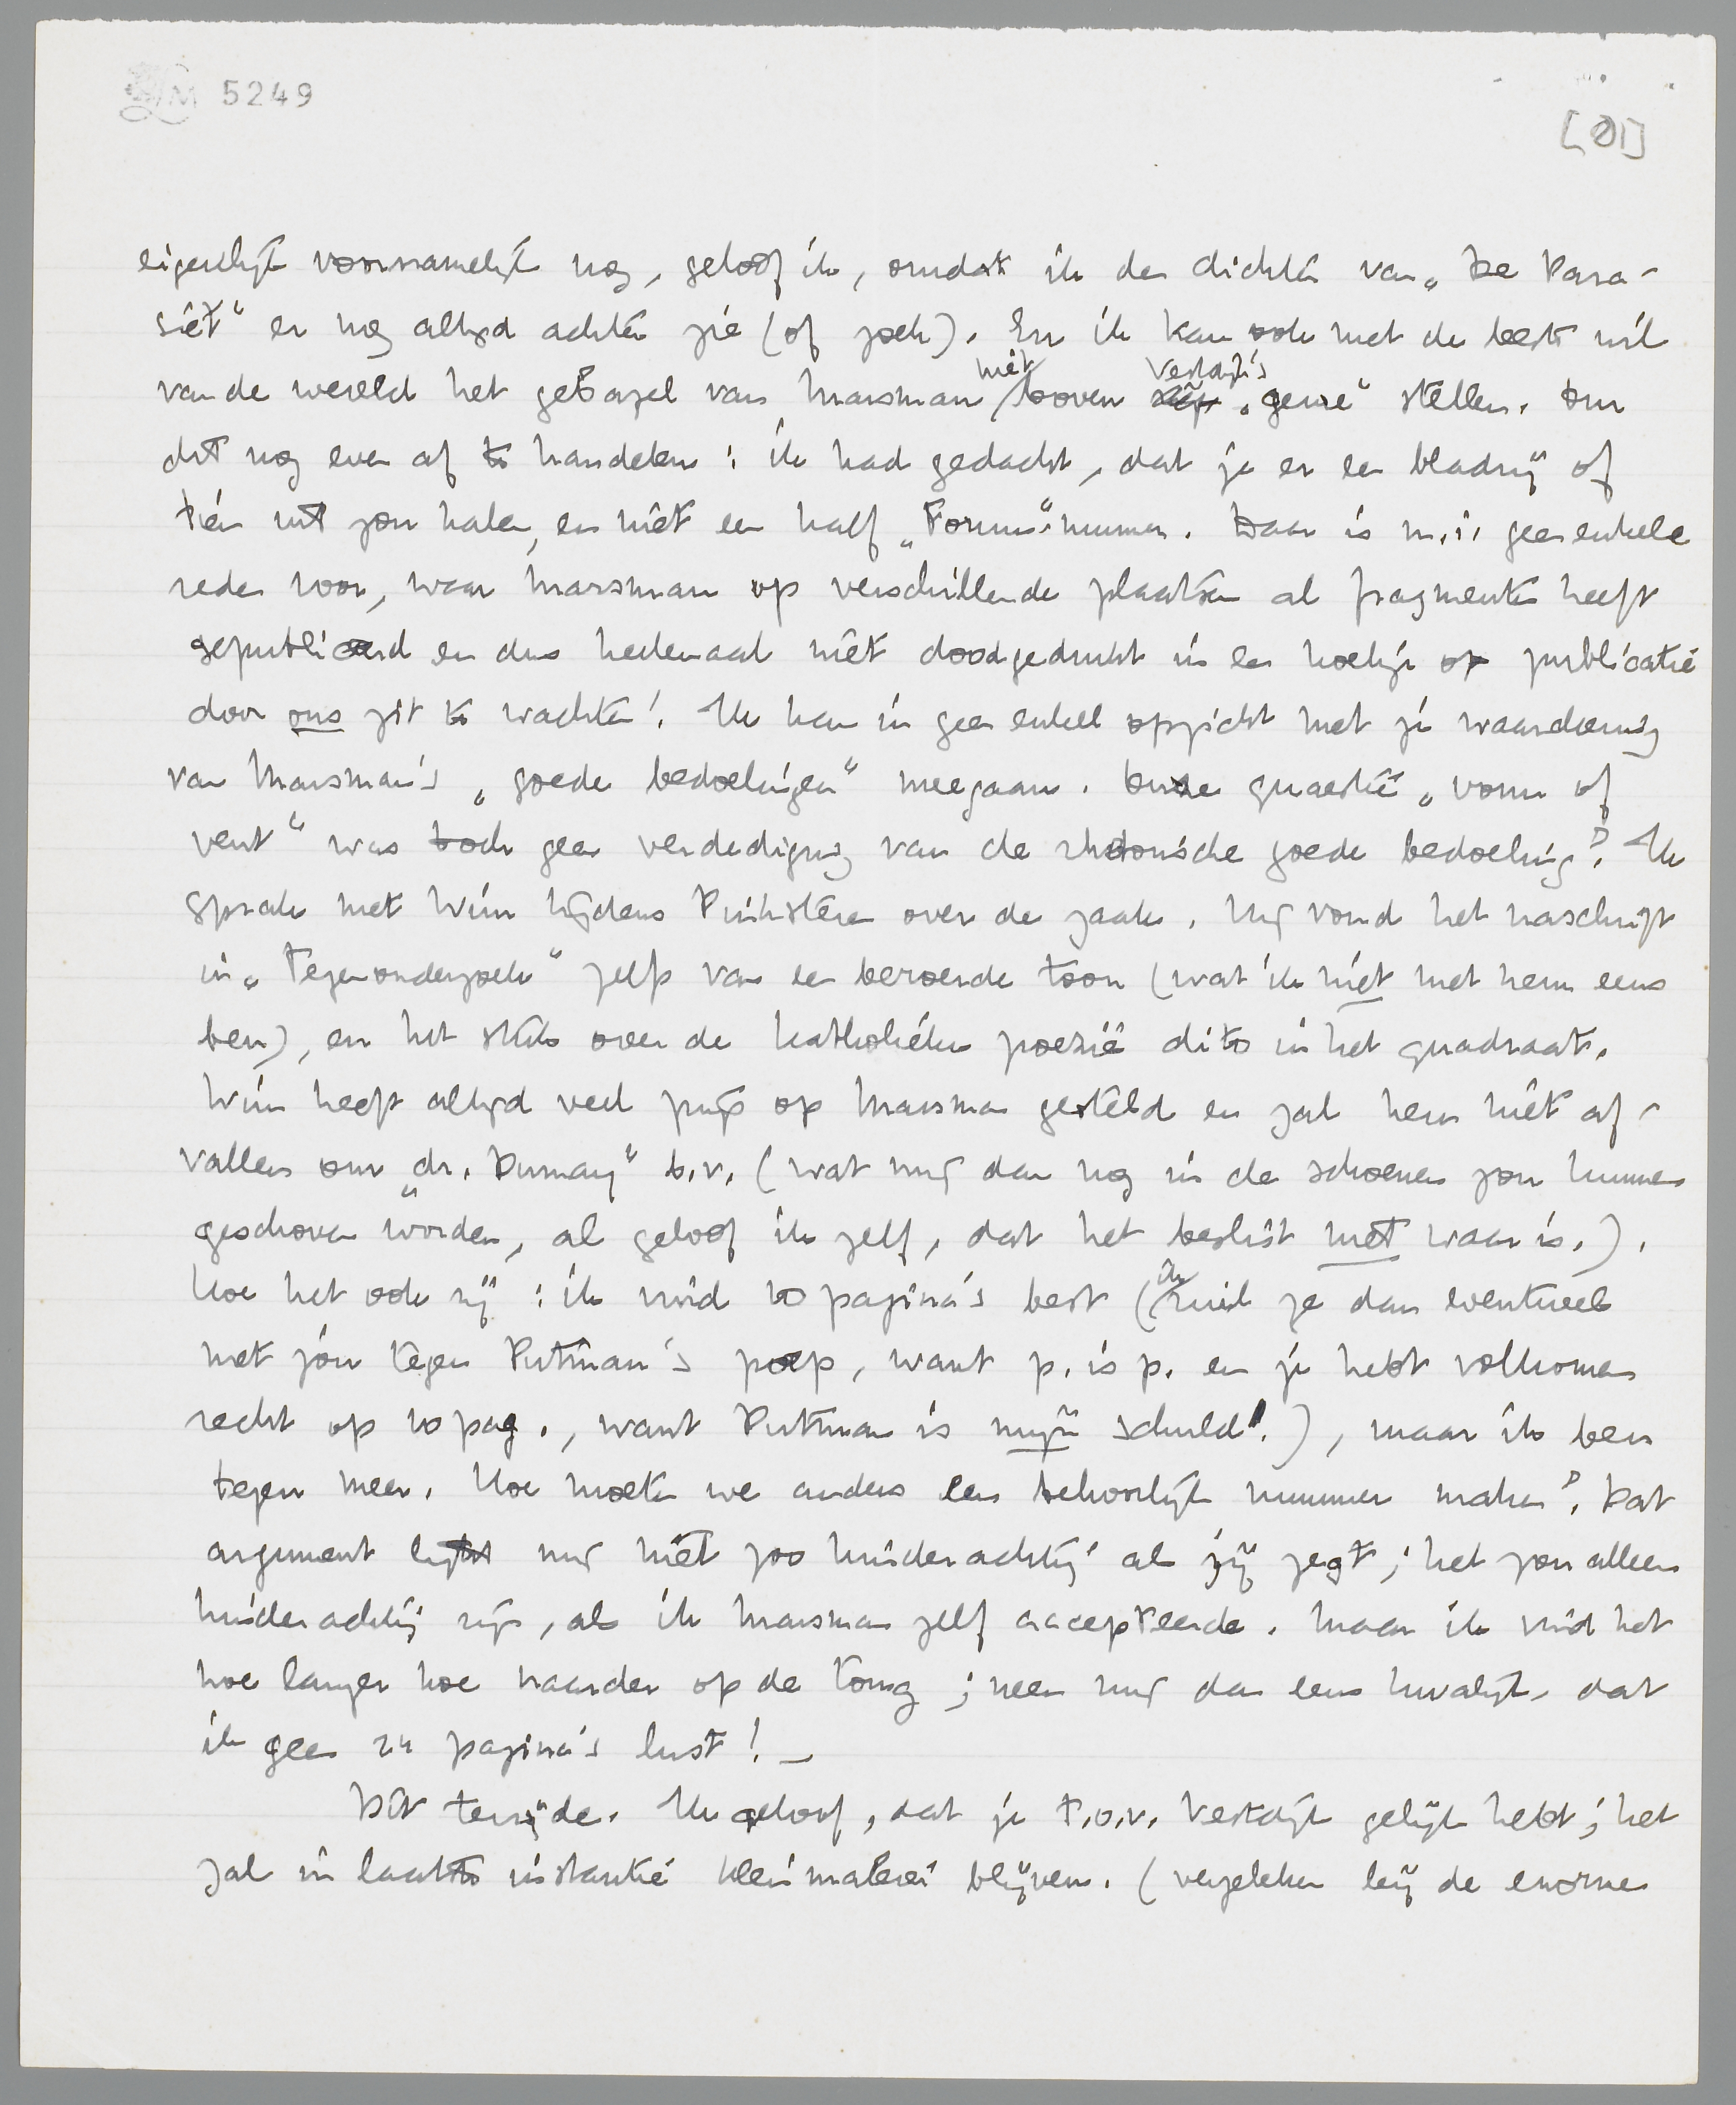 LM 5249
[01]
eigenlijk voornamelijk nog, geloof ik, omdat ik den dichter van „De Para-
siet" er nog altijd achter zie (of zoek). En ik kan ook met de beste wil
van de wereld het gebazel van Marsman niet boven Vestdijk's „genre" stellen. Om
dit nog even af te handelen: ik had gedacht, dat je er een bladzij of
tien uit zou halen, en niet een half „Forum"-nummer. Daar is m.i. geen enkele
reden voor, waar Marsman op verschillende plaatsen al fragmenten heeft
gepubliceerd en dus heelemaal niet doodgedrukt in een hoekje op publicatie
door ons zit te wachten! Ik kan in geen enkel opzicht met je waardeering
van Marsman's „goede bedoelingen" meegaan. Onze quaestie „vorm of
vent" was toch geen verdediging van de rhetorische goede bedoeling? Ik
sprak met Wim tijdens Pinksteren over de zaak. Hij vond het naschrift
in „Tegenonderzoek" zelfs van een beroerde toon (wat ik niet met hem eens
ben), en het stuk over de katholieke poëzie dito in het quadraat.
Wim heeft altijd veel prijs op Marsman gesteld en zal hem niet af-
vallen om „dr. Dumay" b.v. (wat mij dan nog in de schoenen zou kunnen
geschoven worden, al geloof ik zelf, dat het beslist niet waar is.).
Hoe het ook zij: ik vind 10 pagina's best (ik ruil ze dan eventueel
met jou tegen Putman's poep, want p. is p. en je hebt volkomen
recht op 10 pag., want Putman is mijn schuld!), maar ik ben
tegen meer. Hoe moeten we anders een behoorlijk nummer maken? Dat
argument lijkt mij niet zoo kinderachtig als jij zegt; het zou alleen
kinderachtig zijn, als ik Marsman zelf accepteerde. Maar ik vind het
hoe langer hoe naarder op de tong; neem mij dan eens kwalijk, dat
ik geen 24 pagina's lust! —
Dit terzijde. Ik geloof, dat je t.o.v. Vestdijk gelijk hebt; het
zal in laatste instantie Kleinmalerei blijven. (vergeleken bij de enorme